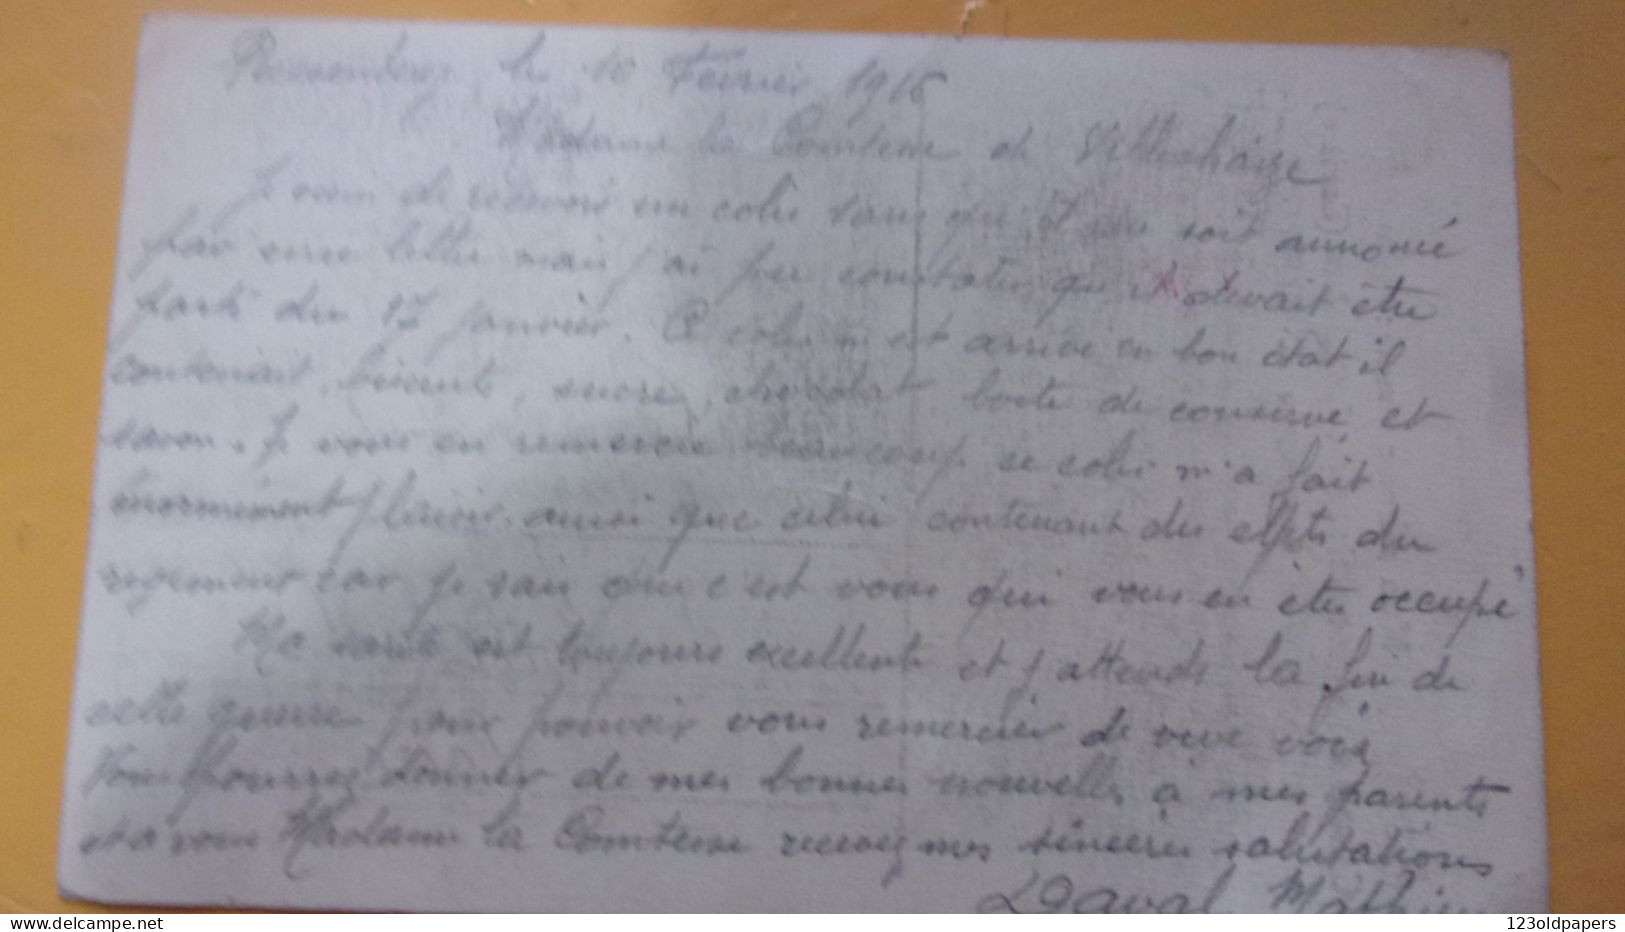 le 10 Février 1915
Madame la Comtesse de Villechaize
Je vien de recevoir un colis sans qu'il me soit annoncé
par une lettre mais j'ai pu constater qu'il devait être
parti du 17 janvier. Ce colis m'est arrivé en bon état il
contenait, biscuits, sucre, chocolat boite de conserve et
savon. Je vous en remercie beaucoup se colis m'a fait
énormément plaisir ainsi que celui contenant des effets du
regiment car je sais que c'est vous qui vous en êtes occupé
Ma santé est toujours excellente et j'attends la fin de
cette guerre pour pouvoir vous remercier de vive voix
Vous pourrez donner de mes bonnes nouvelles à mes parents
et a vous Madame la Comtesse recevez mes sincères salutations
Daval Mathieu
123oldpapers